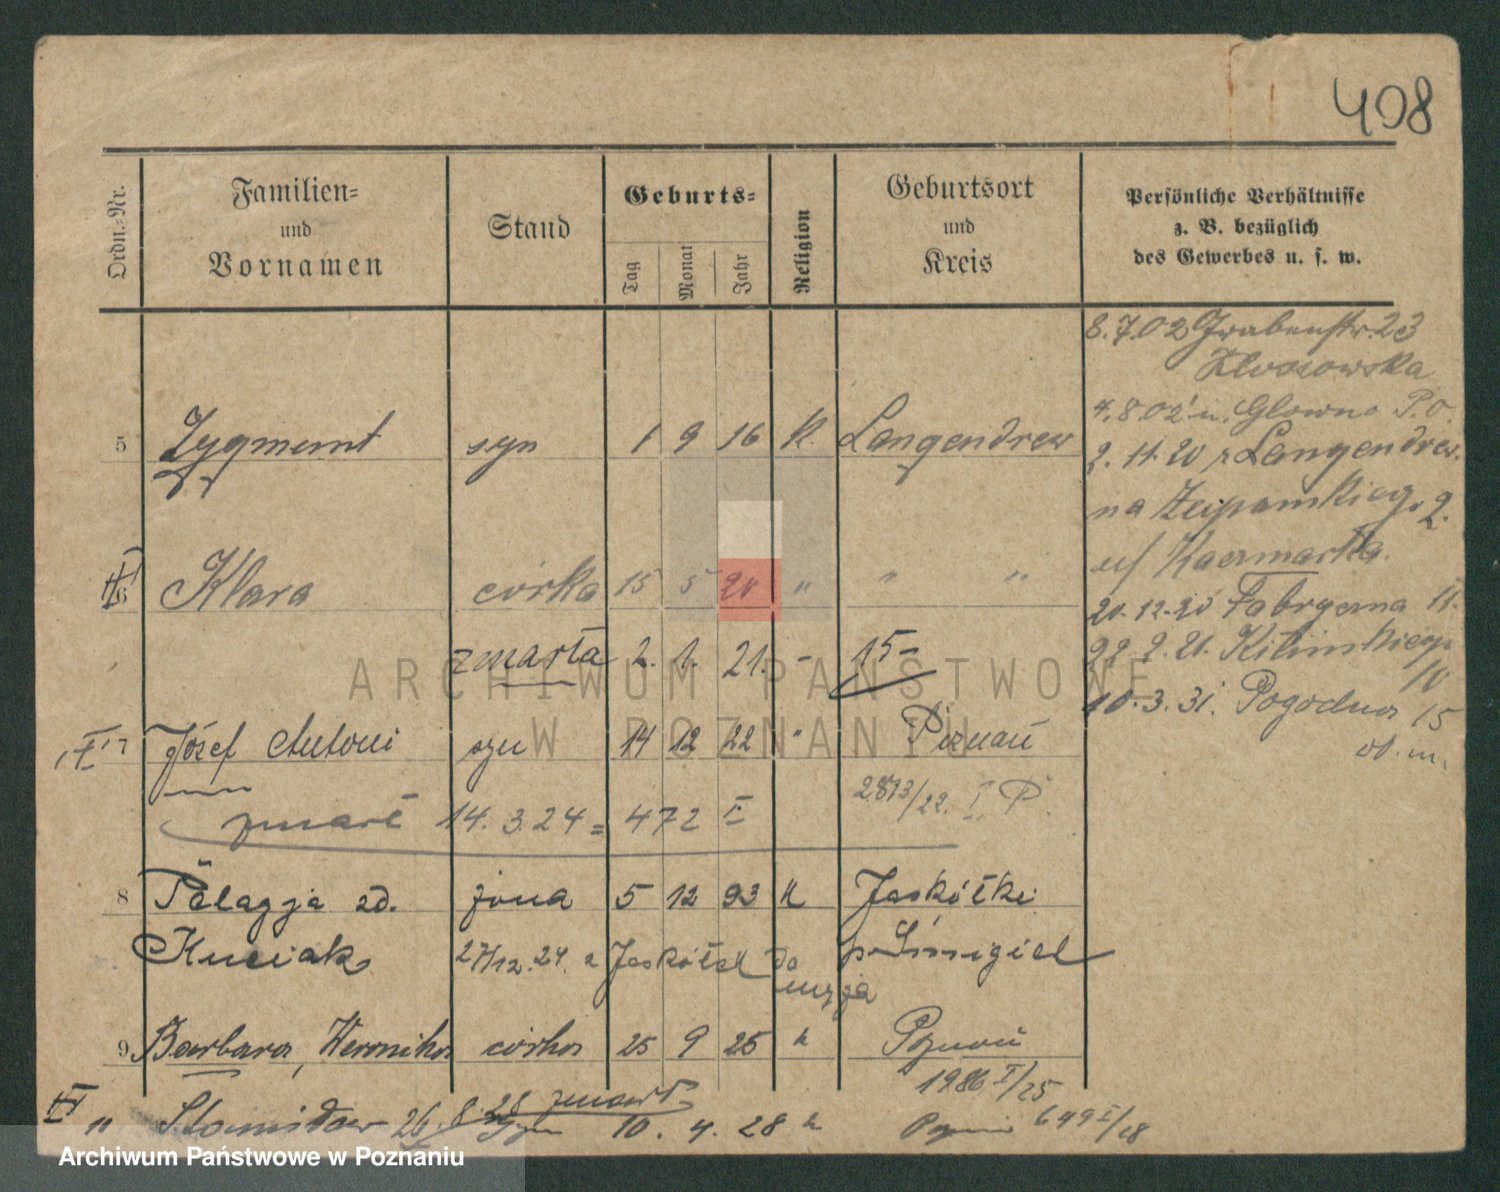 408
Ordn.-Nr.
Familien-
und
Vornamen
Stand
Geburts-
Tag
Monat
Jahr
Religion
Geburtsort
und
Kreis
Persönliche Verhältnisse
z. B. bezüglich
des Gewerbes u. s. w.
8.7.02 Grabenstr. 23
4.8.02 n. Glowno P.O.
5 Zygmunt syn 1 9 16 K. Langendreer
2. 11. 20 z Langendreer
na
6 Klara córka 15 5 20 " " "
u/ Kaczmarka.
20.12.20 Fabryczna 11.
zmarła 2. 1. 21. - 15-
22. 2. 21. Kilińskiego
10
10.3.31. Pogodna 15
7 Józef Antoni syn 14 12 22 " Poznań
2813/22. I P.
zmarł 14. 3. 24 = 472 II
8 Pelagja zd. żona 5 12 93 K Jaskółki
Kuciak 27/12. 24. z Jaskółek p. Śmigiel
9 Barbara, Weronika córka 25 9 25 k Poznań
1986 I/25
" Stanisław 26. 8. 28 zmarł
syn 10. 4. 28 k 649 I/28
ARCHIWUM PAŃSTWOWE
W POZNANIU
Archiwum Państwowe w Poznaniu